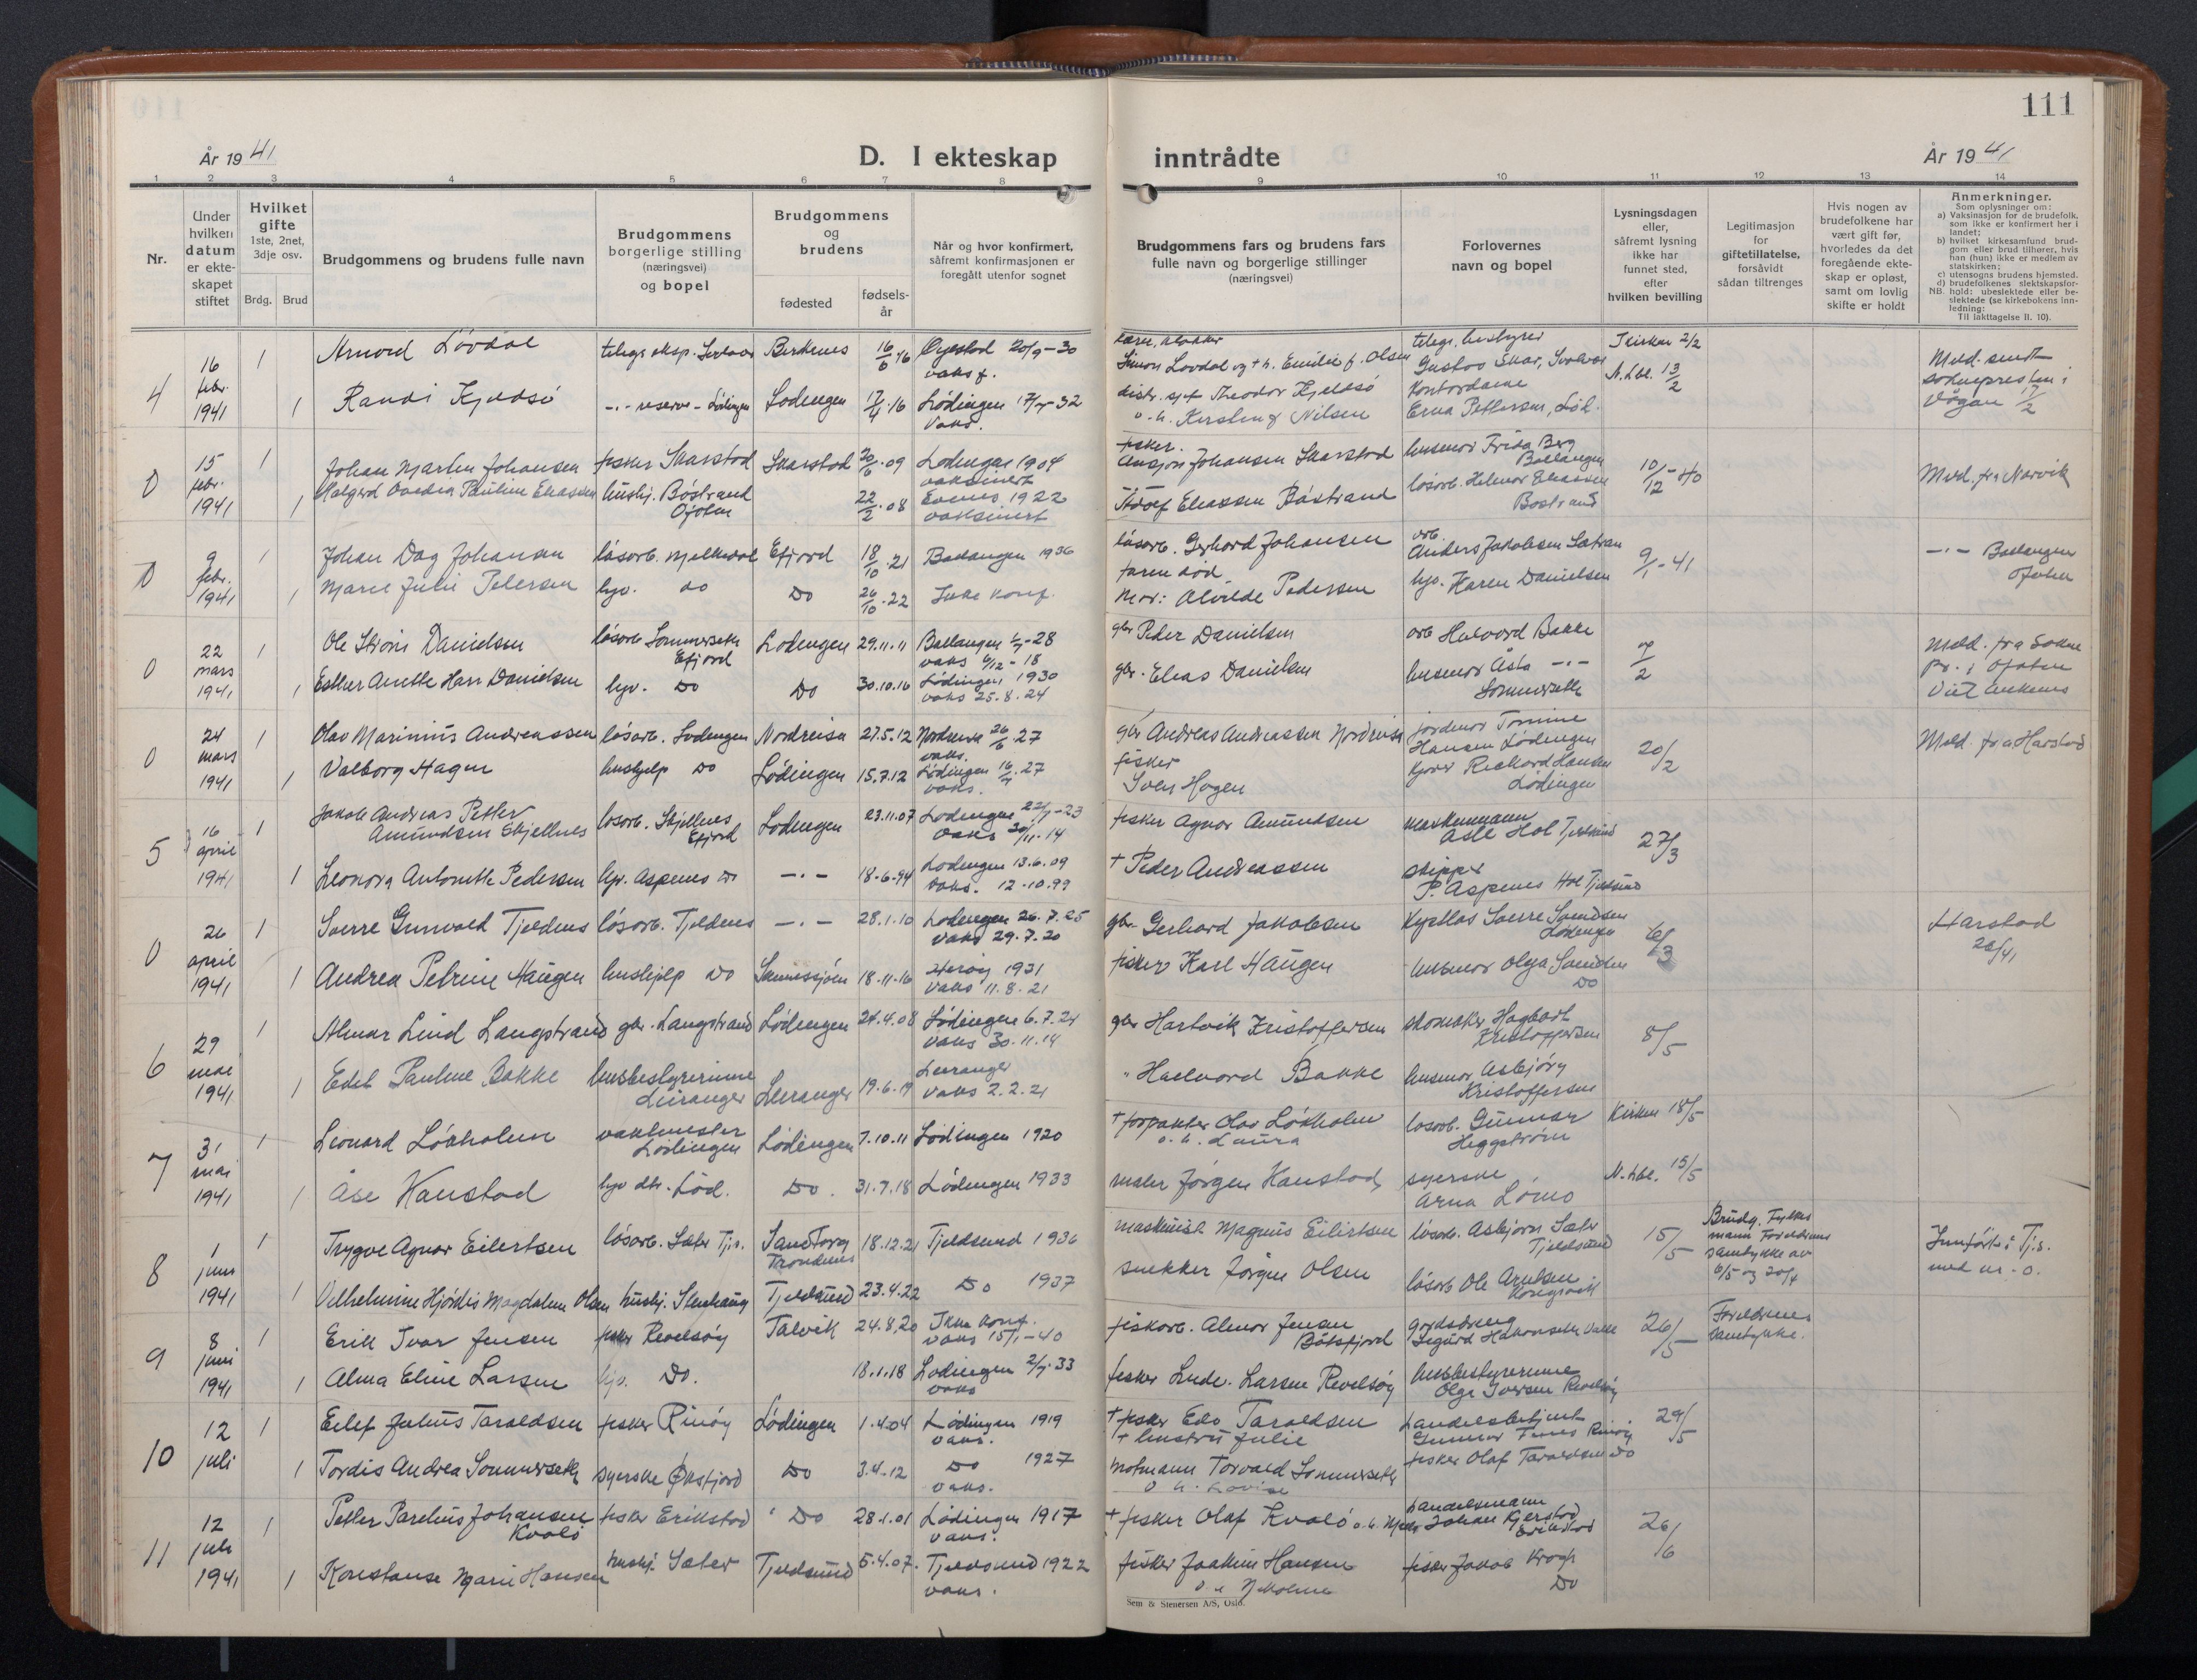 111
År 1941
D. I ekteskap inntrådte
År 1941
1 2 3 4 5 6 7 8 9 10 11 12 13 14
Nr.
Under
hvilken
datum
er ekte-
skapet
stiftet
Hvilket
gifte
1ste, 2net,
3dje osv.
Brdg. Brud
Brudgommens og brudens fulle navn
Brudgommens
borgerlige stilling
(næringsvei)
og bopel
Brudgommens
og
brudens
fødested
fødsels-
år
Når og hvor konfirmert,
såfremt konfirmasjonen er
foregått utenfor sognet
Brudgommens fars og brudens fars
fulle navn og borgerlige stillinger
(næringsvei)
Forlovernes
navn og bopel
Lysningsdagen
eller,
såfremt lysning
ikke har
funnet sted,
efter
hvilken bevilling
Legitimasjon
for
giftetillatelse,
forsåvidt
sådan tiltrenges
Hvis nogen av
brudefolkene har
vært gift før,
hvorledes da det
foregående ekte-
skap er opløst,
samt om lovlig
skifte er holdt
Anmerkninger.
Som oplysninger om:
a) Vaksinasjon for de brudefolk,
som ikke er konfirmert her i
landet;
b) hvilket kirkesamfund brud-
gom eller brud tilhører, hvis
han (hun) ikke er medlem av
statskirken;
c) utensogns brudens hjemsted.
d) brudefolkenes slektskapsfor-
NB. hold: ubeslektede eller be-
slektede (se kirkebokens inn-
ledning:
Til iakttagelse II. 10).
4
16 febr. 1941
1 Arnord Lövdal telegr. eksp. Birkenes 16/6 16 Öyestad 20/9-30
vaks f.
Simon Lovdal og h. Emilie f. Olsen
telegr. bestyrer
Gustav Skar, Svolvær
I kirken 2/2
1 Randi Kjeldsö -"- reserve - Lödingen Lodingen 17/4 16 Lödingen 17/7-32
Vaks.
Theodor Kjeldsö
o. h. Nilsen
Kontordame
Erna Pettersen, Löd.
N. lbl. 13/2
Meld. sendt
sokneprest i
Vågan 17/2
0
15 febr. 1941
1 Johan Martin Johansen fisker Skarstad Skarstad 20/6 09 Lodingen 1904
vaksinert
fisker
Johansen Skarstad
husmor Frida Berg
Ballangen
10/12-40
Meld. fra Narvik
1 Pauline Eliassen hushj. Böstrand
Ofoten
22/2 08 Evenes 1922
vaksinert
Adolf Eliassen Böstrand
lösarb. Helmer Eliassen
Bostrand
0
9 febr. 1941
1 Johan Dag Johansen lösarb. Efjord 18/10 21 Ballangen 1936
lösarb. Gerhard Johansen
arb.
Anders Jakobsen
9/1-41
-"- Ballangen
Ofoten
1 Marie Julie Petersen hjv. do Do 26/10 22 Ikke konf.
faren död
Mor: Alvilde Pedersen
hjv. Karen Danielsen
0
22 mars 1941
1 Ole Ström Danielsen lösarb. Sommerseth
Efjord
Lodengen 29.11.11 Ballangen -28
vaks 6/12-18
gbr Peder Danielsen
arb Halvard Bakke
7/2
Meld. fra Sokne
pr. i Ofoten
1 Esther Anette Danielsen hjv. Do Do 30.10.16 Lödingen 1930
vaks 25.8.24
gbr. Elias Danielsen
husmor Åsta -"-
Sommerseth
0
24 mars 1941
1 Olav Marinius Andreassen lösarb. Lodengen Nordreisa 27.5.12 Nordreisa 26/6 27
vaks.
gbr Andreas Andreassen Nordreisa
jordmor Tomine
Hansen Lödingen
20/2
Meld. fra Harstad
1 Valborg Hagen hushjelp Do Lödingen 15.7.12 Lödingen 16/7 27
vaks.
fisker
Sven Hagen
Richard Hansen
Lödingen
5
16 april 1941
1 Jakob Andreas Petter
Amundsen Skjellnes lösarb. Skjellnes
Efjord
Lodingen 23.11.07 Lodengen 22/7-23
Vaks 30/11-14
fisker Agnar Amundsen
Hol Tjeldsund
27/3
1 Leonora Antonette Pedersen hjv. Aspenes do -"- 18-6-94 Lodengen 13.6.09
Vaks. 12-10.99
+ Peder Andreassen
skipper
P. Aspenes Hol Tjeldsund
0
26 april 1941
1 Sverre Gunvald Tjeldnes lösarb. Tjeldnes -"- 28.1.10 Lodengen 26.7.25
Vaks 29.7.20
gbr Gerhard Jakobsen
Sverre Svendsen
Lödingen
6/3
Harstad
26/41
1 Andrea Petrine Haugen hushjelp Do 18-11-16 Heröy 1931
Vaks 11.8.21
fisker Karl Haugen
husmor Olga Svendsen
Do
6
29 mai 1941
1 Almar Lind Langstrand gbr. Langstrand Lödingen 24.4.08 Lödingen 6.7.24
Vaks 30.11.14
gbr Hartvik Kristoffersen
skomaker Hagbart
Kristoffersen
8/5
1 Edel Pauline Bakke husbestyrerinne
Leiranger
Leiranger 19.6.19 Leiranger
Vaks 2.2.21
" Haavard Bakke
husmor Asbjörg
Kristoffersen
7
31 mai 1941
1 Leonard Lökholm vaktmester
Lödingen
Lödingen 7.10.11 Lödingen 1920
+ forpakter Olav Lökholm
o. h. Laura
lösarb. Gunnar
Heggström
Kirken 18/5
1 Åse Hanstad hjv. dtr. Löd. Do. 31.7.18 Lödingen 1933
maler Jörgen Hanstad
syerske
Arna Lömo
N. lbl. 15/5
8
1 juni 1941
1 Trygve Agnar Eilertsen lösarb. Sæter Tjs. Sandtorg
Trondenes
18.12.21 Tjeldsund 1936
maskinist Magnus Eilertsen
lösarb. Asbjörn Sæter
Tjeldsund
15/5
Brudg. Fylkes
mann Foreldrenes
samtykke av
6/5 og 20/4
Innfört i Tj.s.
med nr. 0.
1 Vilhelmine Hjördis Magdalene Olsen hushj. Stenhaug Tjeldsund 23.4.22 Do 1937
snekker Jörgen Olsen
lösarb Ole Arntsen
Kongsvik
9
8 juni 1941
1 Erik Ivar Jensen fisker Revelsöy Talvik 24.8.20 Ikke konf.
vaks 15/1-40
fiskarb. Almar Jensen
Båtsfjord
gårdsdreng
Sigurd
26/5
Foreldrenes
samtykke.
1 Alma Eline Larsen hjv. Do. 18.1.18 Lodingen 2/7-33
vaks
fisker Lude. Larsen Revelsöy
husbestyrerinne
Olga Iversen Revelsöy
10
12 juli
1 Eilef Julius Taraldsen fisker Rinöy Lödingen 1.4.04 Lödingen 1919
vaks.
+ fisker Edv Taraldsen
+ hustru Julie
handelsbetjent
Gunnar Rinöy
29/5
1 Tordis Andrea Sommerseth syerske Öksfjord Do 3.4.12 Do 1927
vaks.
Torvald Sommerseth
o h. Lovise
fisker Olaf Taraldsen Do
11
12 juli 1941
1 Petter Parelius Johansen
Kvalö fisker Erikstad " Do 28.1.01 Lödingen 1917
vaks.
+ fisker Olaf Kvalö o. h.
handelsmann
Johan Kjerstad
Erikstad
26/6
1 Konstanse Marie Hansen hushj. Sæter Tjeldsund 5.4.07. Tjeldsund 1922
vaks.
fisker Joakim Hansen
fisker Jakob Krogh
Do
Sem & Stenersen A/S, Oslo.